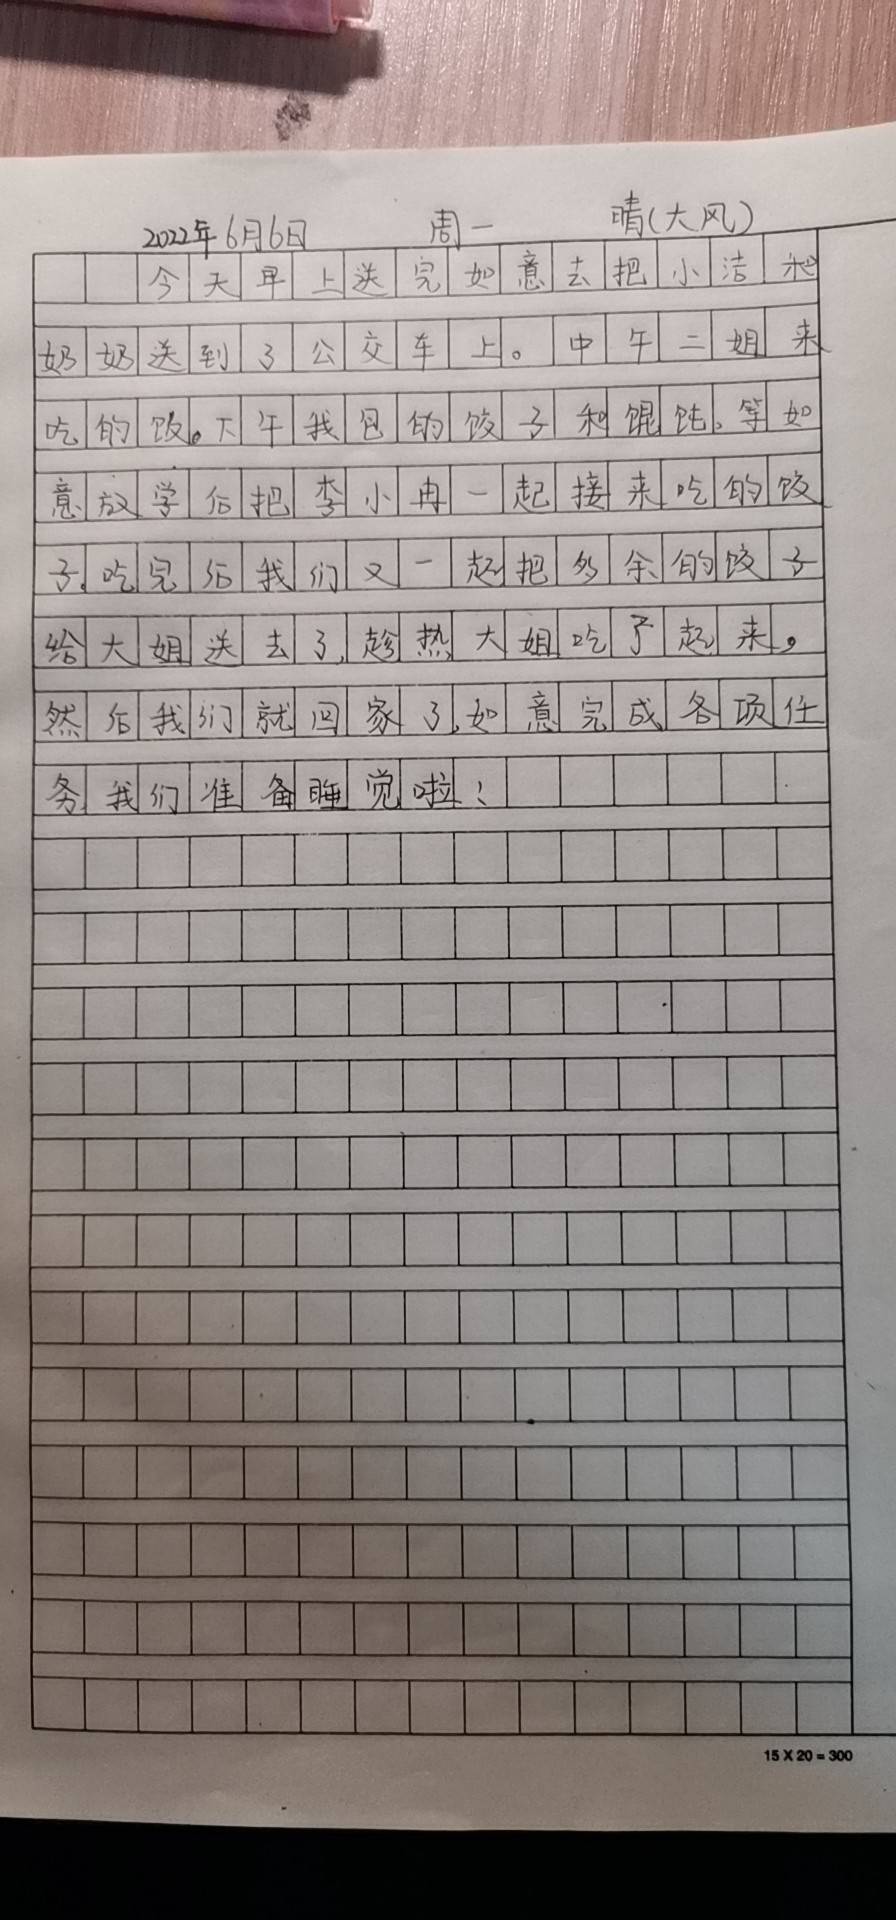 2022年6月6日 周一 晴(大风)
今天早上送完如意去把小洁和
奶奶送到了公交车上。中午二姐来
吃的饭。下午我包的饺子和馄饨。等如
意放学后把李小冉一起接来吃的饺
子。吃完后我们又一起把多余的饺子
给大姐送去了,趁热大姐吃了起来。
然后我们就回家了,如意完成各项任
务,我们准备睡觉啦!
15 X 20 = 300